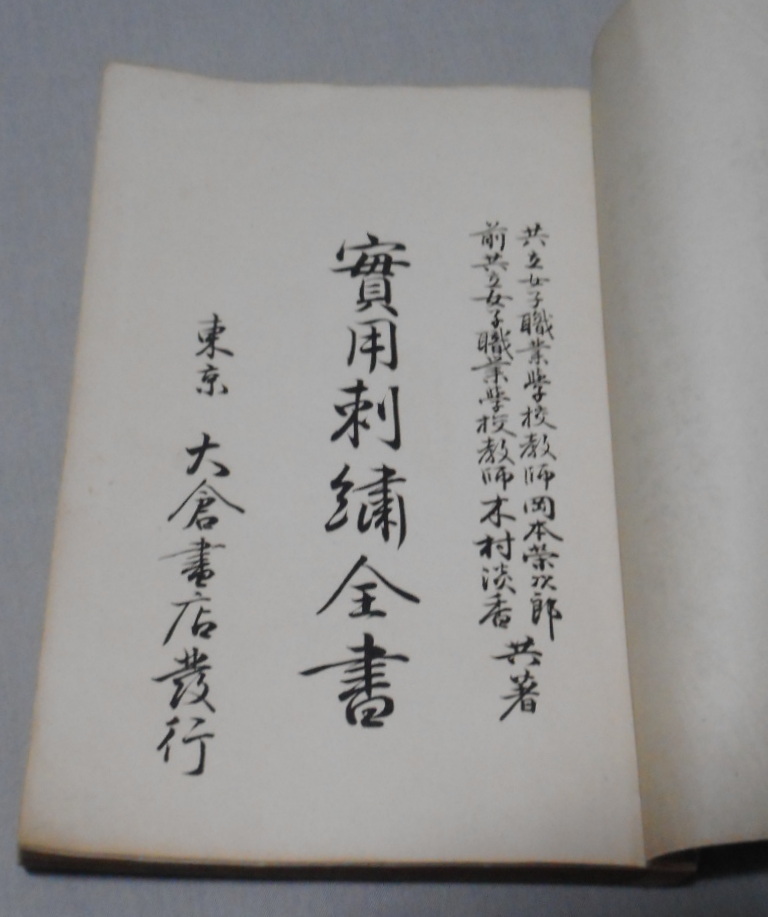 共立女子職業學校教師岡本榮次郎
前共立女子職業學校教師木村淡香
共著
實用刺繡全書
東京 大倉書店發行